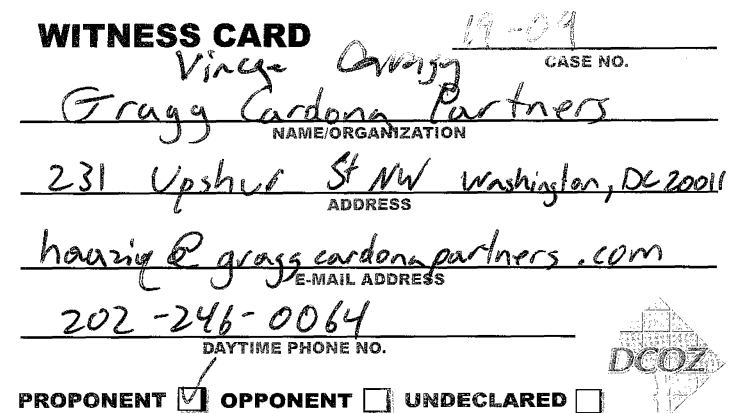 WITNESS CARD
19-09
CASE NO.
Gragg Cardona Partners
NAME/ORGANIZATION
231 Upshur St NW Washington, DC 20011
ADDRESS
@ graggcardonapartners.com
E-MAIL ADDRESS
202-246-0064
DAYTIME PHONE NO.
DCOZ
PROPONENT ☑ OPPONENT ☐ UNDECLARED ☐